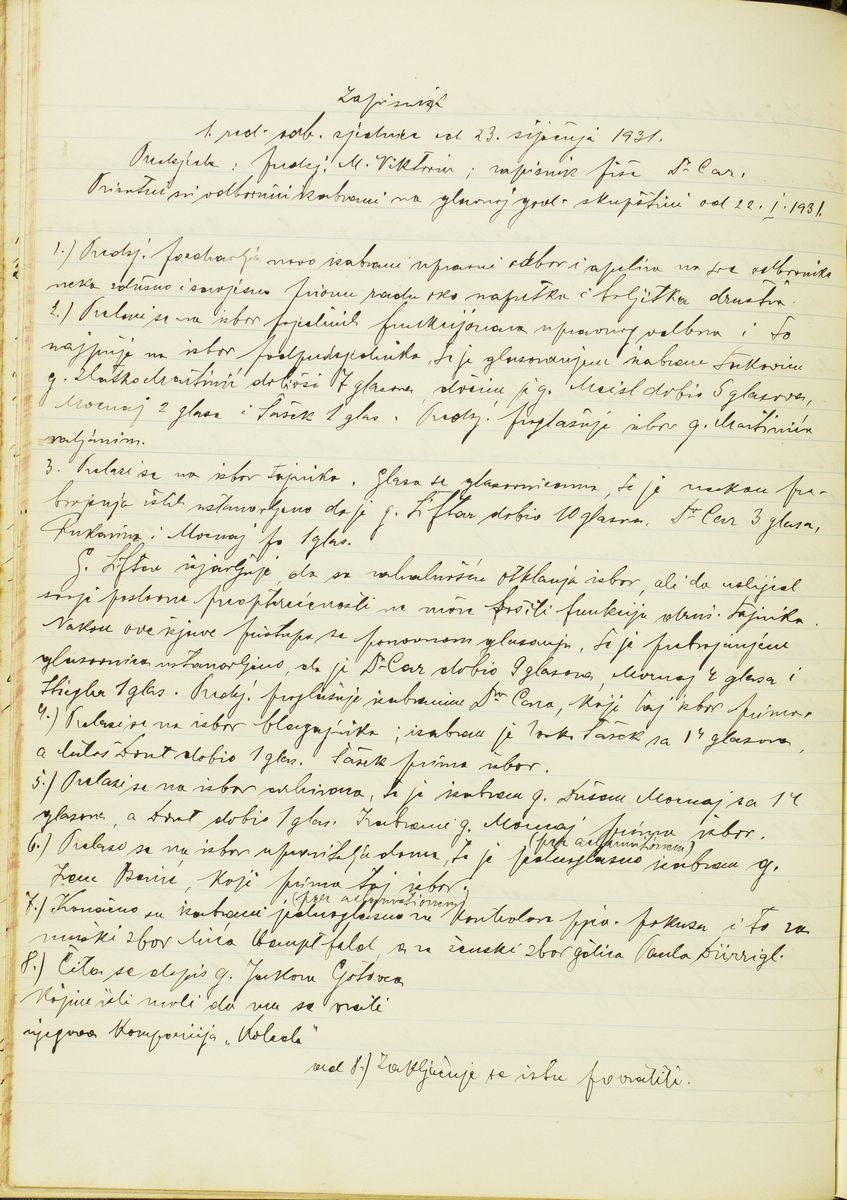 Zapisnik
1. red. odb. sjednice od 23. siječnja 1931.
Predsjeda: predsj. M. Viktorin; zapisnik piše Dr Car.
Prisutni svi odbornici izabrani na glavnoj god. skupštini od 22. I. 1931.
1.) Predsj. pozdravlja novo izabrani upravni odbor i apelira na sve odbornike
neka zdušno i savjesno prionu radu oko napretka i boljitka društva.
2.) Prelazi se na izbor pojedinih funkcijonara upravnog odbora i to
najprije na izbor podpredsjednika, te je glasovanjem izabran
g. Zlatko dobivši 7 glasova, dočim je g. Meisl dobio 5 glasova,
Mornaj 2 glasa i Tašek 1 glas. Predsj. proglašuje izbor g. Martinića
valjanim.
3. Prelazi se na izbor tajnika. Glasa se glasovnicama, te je nakon pre-
brojenja istih ustanovljeno da je g. Liftar dobio 10 glasova, Dr Car 3 glasa,
Pukanina i Mornaj po 1 glas.
G. Liftar izjavljuje, da sa zahvalnošću otklanja izbor, ali da uslijed
svoje poslovne preopterećenosti ne može vršiti funkciju društ. tajnika.
Nakon ove izjave pristupa se ponovnom glasovanju, te je prebrojenjem
glasovnica ustanovljeno, da je Dr Car dobio 9 glasova, Mornaj 4 glasa i
Stiegler 1 glas. Predsj. proglašuje izabranim Dra Cara, koji taj izbor prima.
4.) Prelazi se na izbor blagajnika; izabran je Tašek sa 14 glasova,
a Dont dobio 1 glas. Tašek prima izbor.
5.) Prelazi se na izbor arhivara, te je izabran g. Dušan Mornaj sa 14
glasova, a Dont dobio 1 glas. Izabrani g. Mornaj prima izbor.
6.) Prelazi se na izbor upravitelja doma, te je jednoglasno (per acclamationem) izabran g.
Ivan Banić, koji prima taj izbor.
7.) Konačno su izabrani jednoglasno (per acclamationem) za kontrolore pjev. pokusa i to za
muški zbor braća Hauptfeld, a za ženski zbor gđica Paula Dürrigl.
8.) Čita se dopis g. Jakova Gotovca
kojim isti moli da mu se vrati
njegova kompozicija „Koleda"
ad 8.) Zaključuje se istu povratiti.